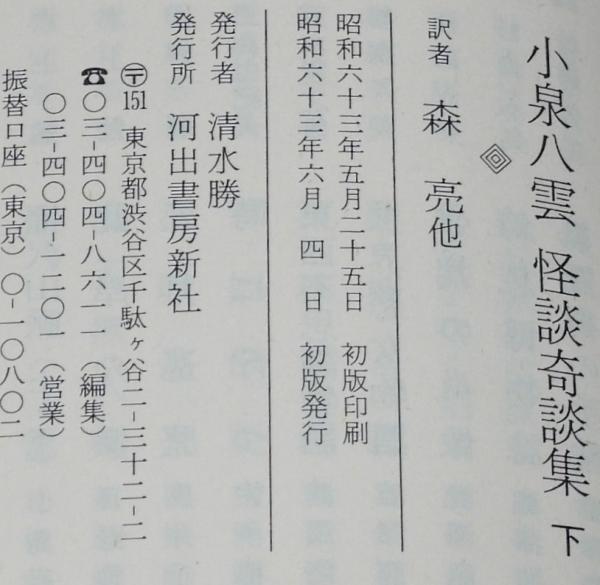 小泉八雲 怪談奇談集 下
訳者 森 亮他
昭和六十三年五月二十五日 初版印刷
昭和六十三年六月 四 日 初版発行
発行者 清水勝
発行所 河出書房新社
〶151 東京都渋谷区千駄ヶ谷二-三十二-二
☎〇三-四〇四-八六一一(編集)
〇三-四〇四-一二〇一(営業)
振替口座(東京)〇-一〇八〇二